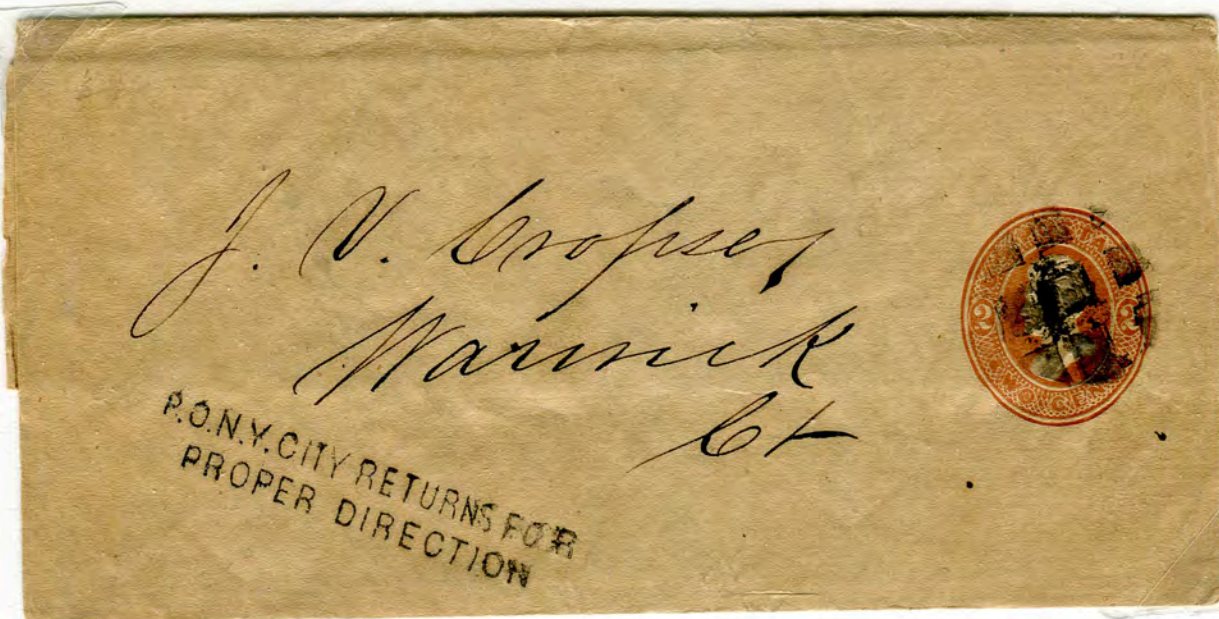 J. V. Cropsey
Warwick
Ct
P.O.N.Y. CITY RETURNS FOR
PROPER DIRECTION
2 2
TWO CENTS